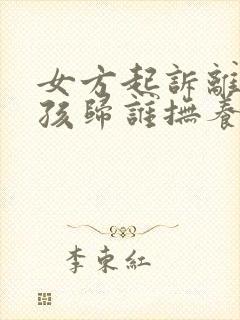 女方起訴離
孩歸誰撫養
李東紅